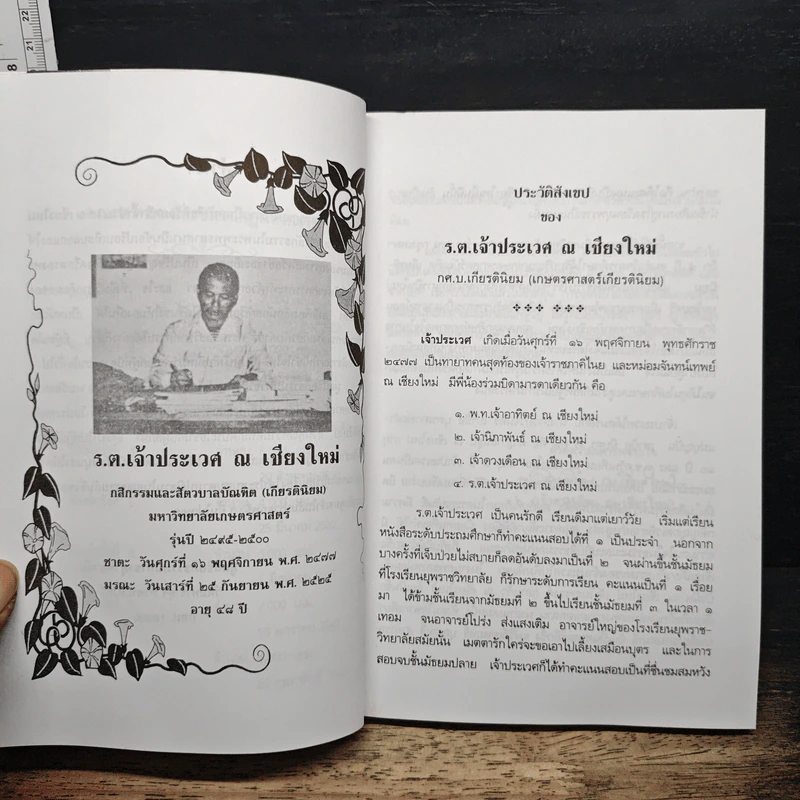 ร.ต.เจ้าประเวศ ณ เชียงใหม่
กสิกรรมและสัตวบาลบัณฑิต (เกียรตินิยม)
มหาวิทยาลัยเกษตรศาสตร์
รุ่นปี ๒๔๙๕-๒๕๐๐
ชาตะ วันศุกร์ที่ ๑๖ พฤศจิกายน พ.ศ. ๒๔๗๗
มรณะ วันเสาร์ที่ ๒๕ กันยายน พ.ศ. ๒๕๒๕
อายุ ๔๘ ปี
ประวัติสังเขป
ของ
ร.ต.เจ้าประเวศ ณ เชียงใหม่
กศ.บ.เกียรตินิยม (เกษตรศาสตร์เกียรตินิยม)
เจ้าประเวศ เกิดเมื่อวันศุกร์ที่ ๑๖ พฤศจิกายน พุทธศักราช
๒๔๗๗ เป็นทายาทคนสุดท้องของเจ้าราชภาคิไนย และหม่อมจันทน์เทพย์
ณ เชียงใหม่ มีพี่น้องร่วมบิดามารดาเดียวกัน คือ
๑. พ.ท.เจ้าอาทิตย์ ณ เชียงใหม่
๒. เจ้านิภาพันธ์ ณ เชียงใหม่
๓. เจ้าดวงเดือน ณ เชียงใหม่
๔. ร.ต.เจ้าประเวศ ณ เชียงใหม่
ร.ต.เจ้าประเวศ เป็นคนรักดี เรียนดีมาแต่เยาว์วัย เริ่มแต่เรียน
หนังสือระดับประถมศึกษาก็ทำคะแนนสอบได้ที่ ๑ เป็นประจำ นอกจาก
บางครั้งที่เจ็บป่วยไม่สบายก็ลดอันดับลงมาเป็นที่ ๒ จนผ่านขึ้นชั้นมัธยม
ที่โรงเรียนยุพราชวิทยาลัย ก็รักษาระดับการเรียน คะแนนเป็นที่ ๑ เรื่อย
มา ได้ข้ามชั้นเรียนจากมัธยมที่ ๒ ขึ้นไปเรียนชั้นมัธยมที่ ๓ ในเวลา ๑
เทอม จนอาจารย์โปร่ง ส่งแสงเติม อาจารย์ใหญ่ของโรงเรียนยุพราช-
วิทยาลัยสมัยนั้น เมตตารักใคร่จะขอเอาไปเลี้ยงเสมือนบุตร และในการ
สอบจบชั้นมัธยมปลาย เจ้าประเวศก็ได้ทำคะแนนสอบเป็นที่ชื่นชมสมหวัง
22
21
8